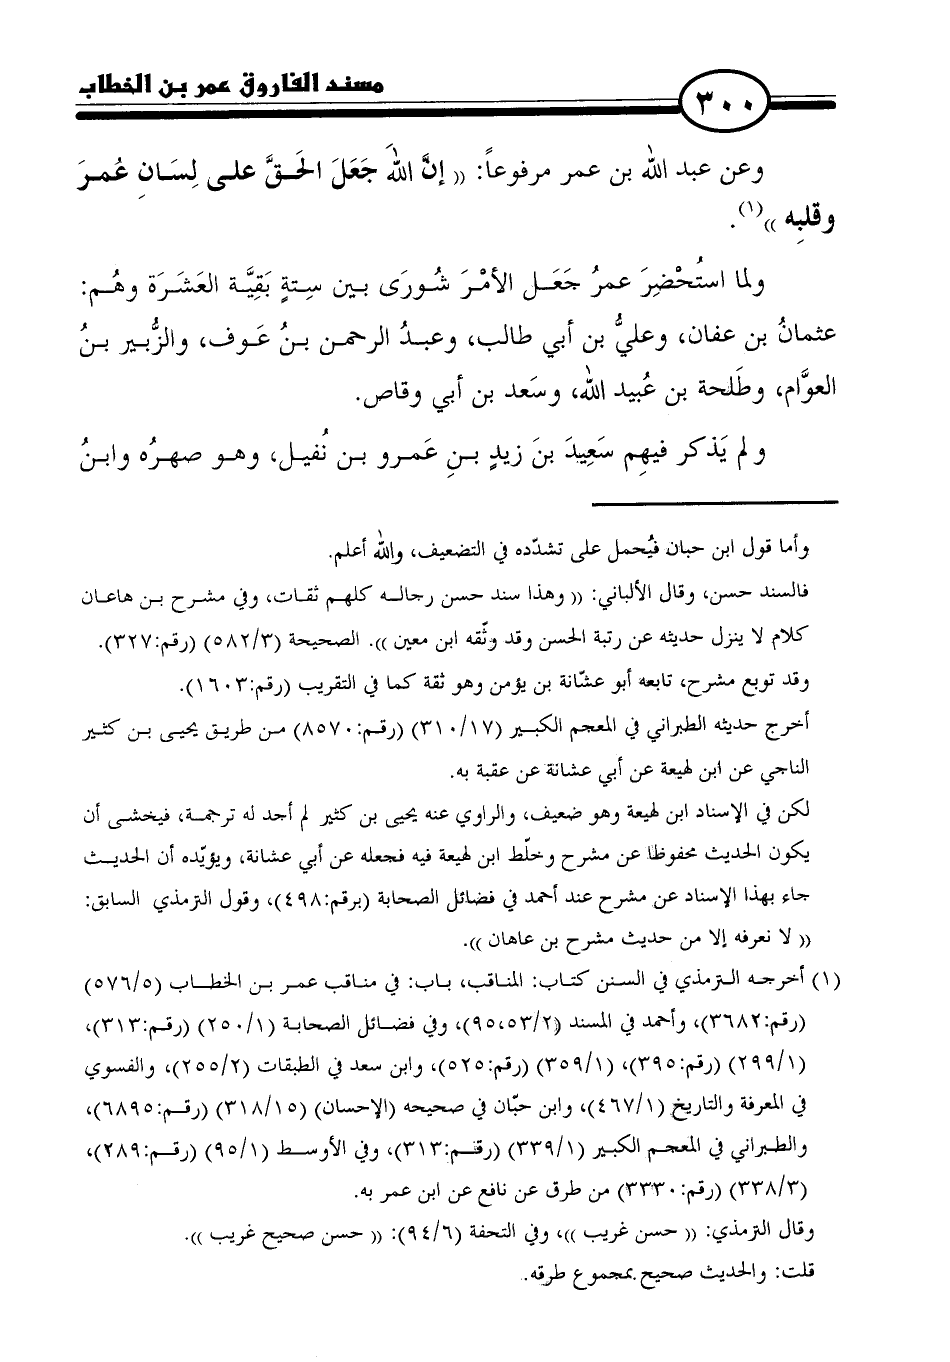 مسند الفاروق عمر بن الخطاب
٣٠٠
وعن عبد الله بن عمر مرفوعاً: (( إنَّ اللهَ جَعَلَ الحَقَّ على لِسَانِ عُمرَ
وقلبِه ))(١).
ولما استُحْضِرَ عمرُ جَعَل الأمْرَ شُورَى بين سِتةٍ بَقِيَّة العَشَرَة وهُم:
عثمانُ بن عفان، وعليُّ بن أبي طالب، وعبدُ الرحمن بنُ عَوف، والزُّبير بنُ
العوَّام، وطَلحة بن عُبيد الله، وسَعد بن أبي وقاص.
ولم يَذكر فيهِم سَعِيدَ بنَ زيدٍ بنِ عَمرو بن نُفيل، وهو صهرُه وابنُ
وأما قول ابن حبان فيُحمل على تشدّده في التضعيف، والله أعلم.
فالسند حسن، وقال الألباني: (( وهذا سند حسن رجاله كلهم ثقات، وفي مشرح بن هاعان
كلام لا ينزل حديثه عن رتبة الحسن وقد وثّقه ابن معين )). الصحيحة (٥٨٢/٣) (رقم:٣٢٧).
وقد توبع مشرح، تابعه أبو عشّانة بن يؤمن وهو ثقة كما في التقريب (رقم:١٦٠٣).
أخرج حديثه الطبراني في المعجم الكبير (٣١٠/١٧) (رقم:٨٥٧٠) من طريق يحيى بن كثير
الناجي عن ابن لهيعة عن أبي عشانة عن عقبة به.
لكن في الإسناد ابن لهيعة وهو ضعيف، والراوي عنه يحيى بن كثير لم أجد له ترجمة، فيخشى أن
يكون الحديث محفوظا عن مشرح وخلّط ابن لهيعة فيه فجعله عن أبي عشانة، ويؤيّده أن الحديث
جاء بهذا الإسناد عن مشرح عند أحمد في فضائل الصحابة (برقم:٤٩٨)، وقول الترمذي السابق:
(( لا نعرفه إلا من حديث مشرح بن عاهان )).
(١) أخرجه الترمذي في السنن كتاب: المناقب، باب: في مناقب عمر بن الخطاب (٥٧٦/٥)
(رقم:٣٦٨٢)، وأحمد في المسند (٩٥،٥٣/٢)، وفي فضائل الصحابة (٢٥٠/١) (رقم:٣١٣)،
(٢٩٩/١) (رقم:٣٩٥)، (٣٥٩/١) (رقم:٥٢٥)، وابن سعد في الطبقات (٢٥٥/٢)، والفسوي
في المعرفة والتاريخ (٤٦٧/١)، وابن حبّان في صحيحه (الإحسان) (٣١٨/١٥) (رقم:٦٨٩٥)،
والطبراني في المعجم الكبير (٣٣٩/١) (رقم:٣١٣)، وفي الأوسط (٩٥/١) (رقم:٢٨٩)،
(٣٣٨/٣) (رقم:٣٣٣٠) من طرق عن نافع عن ابن عمر به.
وقال الترمذي: (( حسن غريب ))، وفي التحفة (٩٤/٦): (( حسن صحيح غريب )).
قلت: والحديث صحيح بمجموع طرقه.